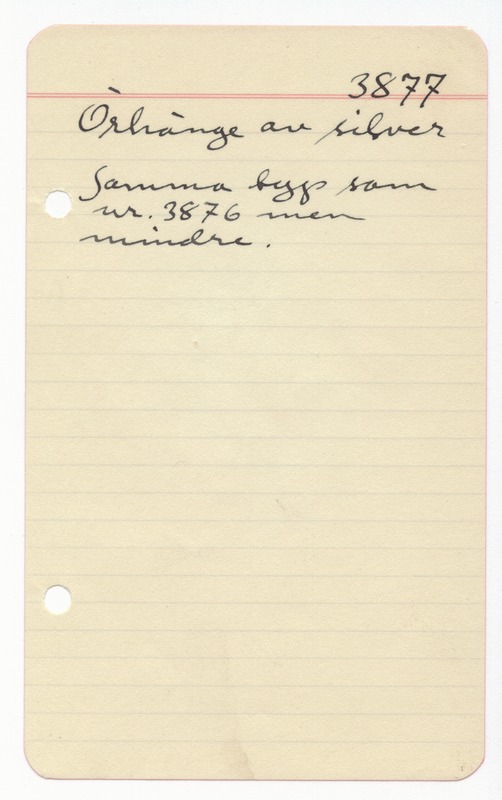 3877
Örhänge av silver
Samma typ som
nr. 3876 men
mindre.